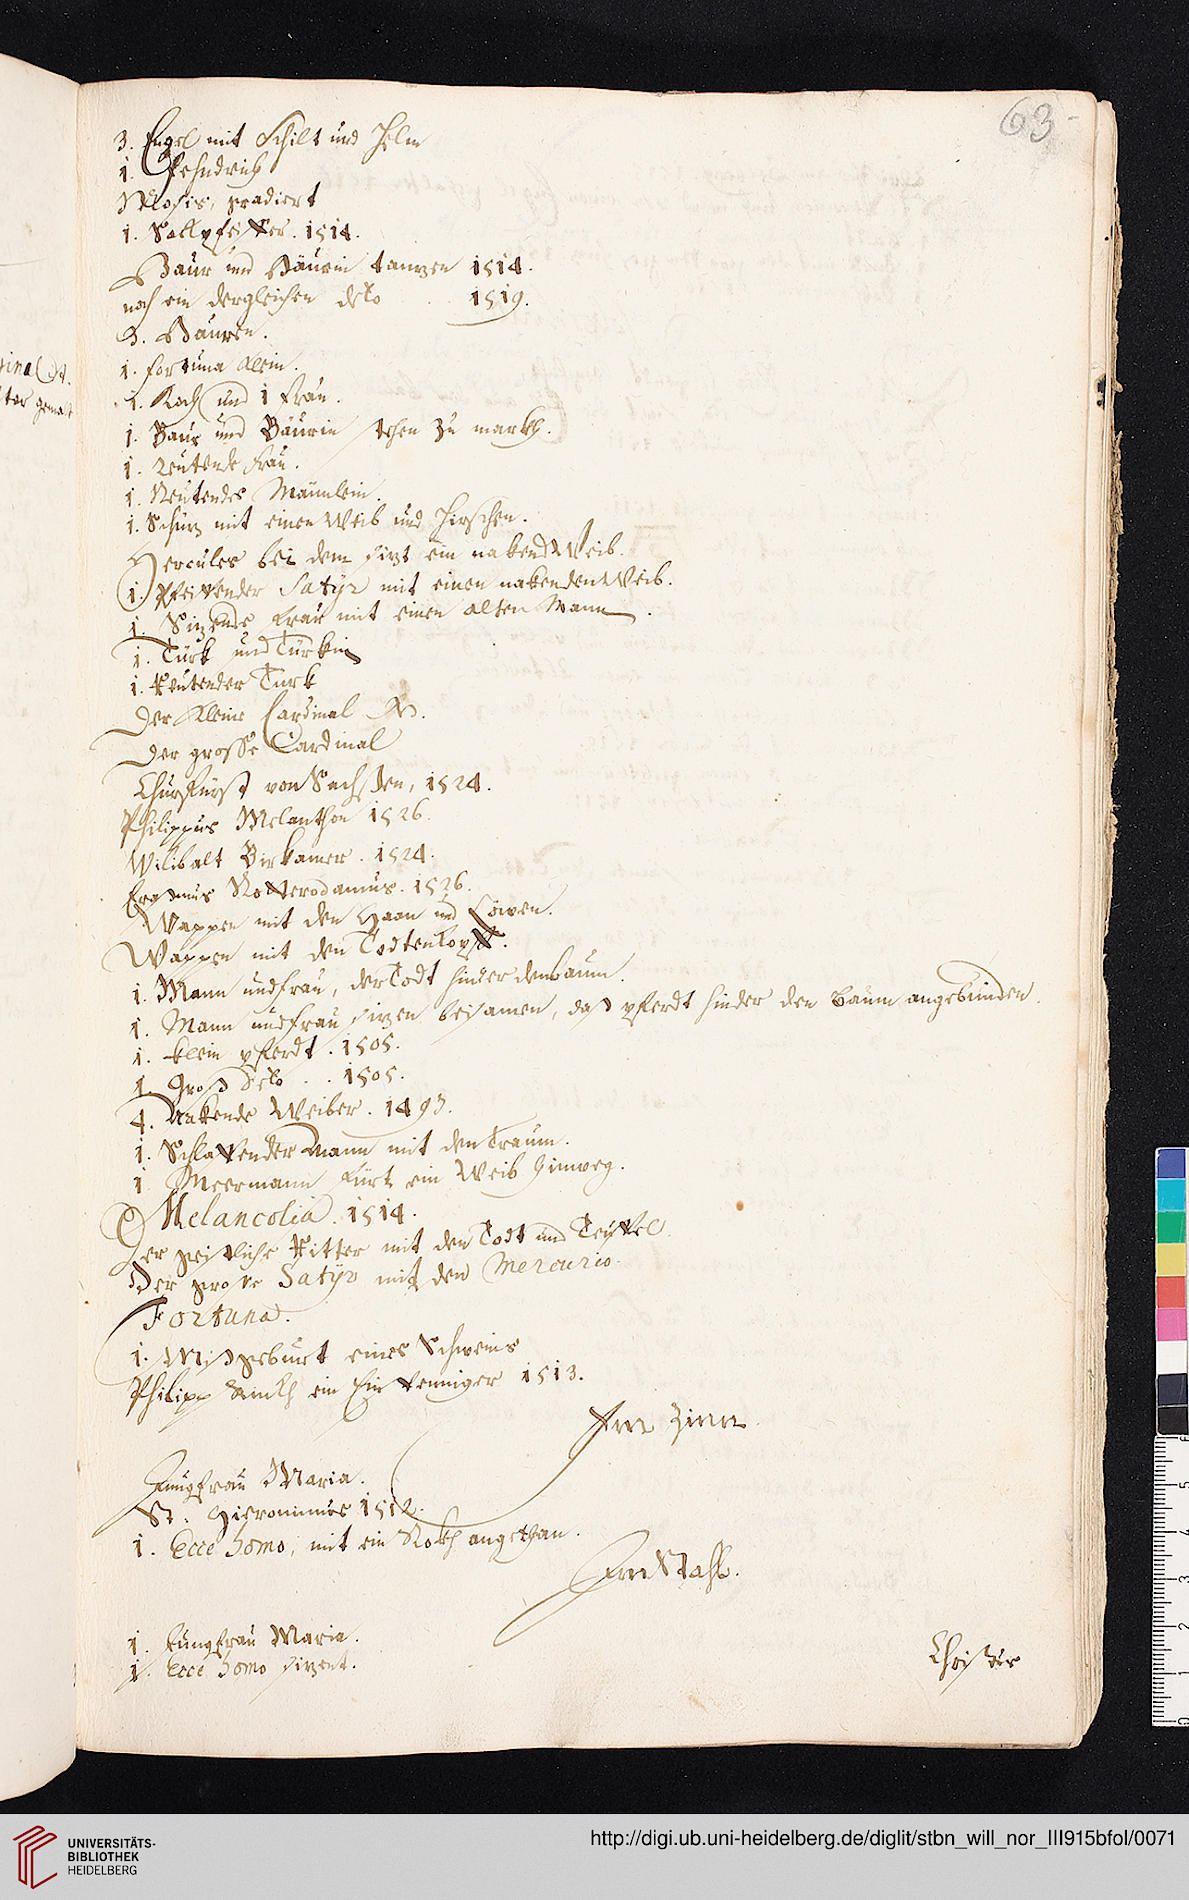 63
3. Engel mit Schilt und Helm
1. Fehndrich
radiert
1. Sackpfeiffer. 1514.
Baur und Bäurin tanzen 1514.
noch ein dergleichen deto 1519.
3. Bauren.
1. fortuna klein.
1. Koch und 1 Frau.
1. Baur und Bäurin stehen zu markh.
1. reutende Frau.
1. Reutendes Mänlein.
1. Schütz mit einen Weib und Hirschen.
Hercules bei dem sizt ein nakend Weib.
1. Pfeiffender Satÿr mit einen nakenden Weib.
1. Sizende Frau mit einen alten Mann.
1. Türk und Türkin
1. Reutender Turk
Der Kleine Cardinal
Der grosse Cardinal
Churfürst von Sachssen, 1524.
Philippus Melanthon 1526.
Wilibalt Birkamer. 1524.
Erasmus Rotterodamus. 1526.
Wappen mit den Haan und Löwen.
Wappen mit den Todtenkopff.
1. Mann und frau, der Todt hinder den baum.
1. Mann und frau sizen beisamen, daß pferdt hinder den baum angebunden.
1. klein pferdt. 1505.
1. Groß deto. . 1505.
4. Nakende Weiber. 1493.
1. Schlaffender Mann mit den Traum.
1 Meermann fürt ein Weib hinweg.
Melancolia. 1514.
Der geistliche Ritter mit den Todt und Teÿffel.
Der grose Satÿr mit den Mercurio.
Fortuna.
1. Mißgeburt eines Schweins
Philipp ein 1513.
Im Zinn.
Jungfrau Maria.
St. Hieronimus 1512.
1. Ecce homo, mit ein Rokh angethan.
Im Stahl.
1. Jungfrau Maria.
1. Ecce homo sizent.
Christus
gina
ter gemalt
UNIVERSITÄTS-
BIBLIOTHEK
HEIDELBERG
http://digi.ub.uni-heidelberg.de/diglit/stbn_will_nor_III915bfol/0071